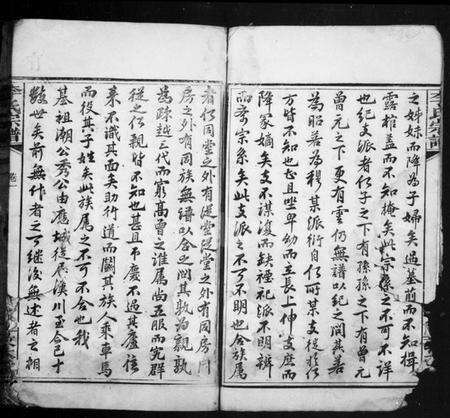 之姊妹而降為子婦矣過墓前而不知揖
露棺蓋而不知掩矣此宗係之不可不詳
也紀支派者何子之下有孫孫之下有曾元
曾元之下更有雲仍無譜以紀之閱其若
為昭若為穆其派衍自何所某支從於何
方皆不知也甚且坐卑幼而立長上伸支庶而
降冢嫡矣支不謀浸而缺禋祀派不明辨
而紊宗系矣此支派之不可不明也合族屬
者何同堂之外有從堂從堂之外有同房同
房之外有同族無譜以合之閱其孰為親孰
為疎越三代而窮高曾之誰屬尚五服而完群
從之何親皆不知也甚且吊慶不過其廬往
來不識其面矣助行道而鬭其族人乘車馬
而役其子姓矣此族屬之不可不合也我
基祖潮公秀公由應城徙居漢川至今已十
數世矣前無作者之可繼後無述者之相
李氏宗譜
卷一